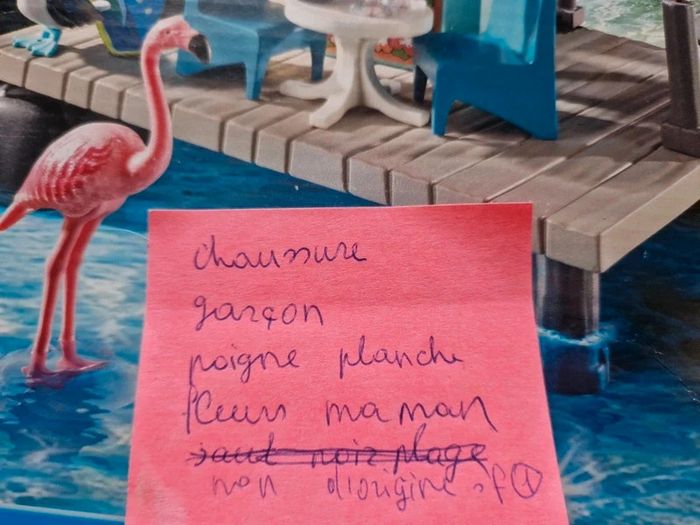 chaussure
garçon
poigne planche
fleurs maman
saut noir plage
non d'origine